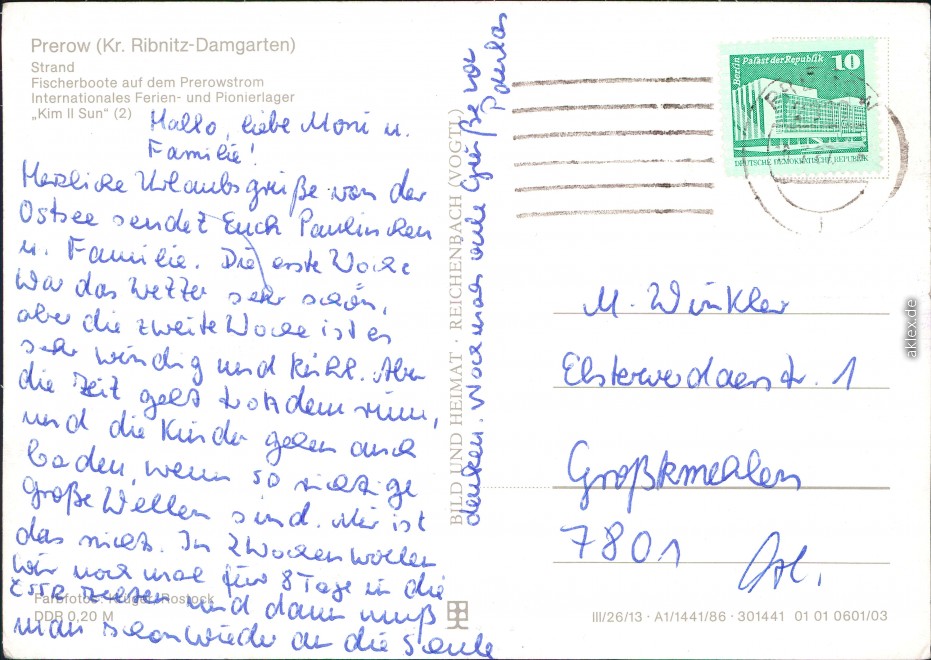 Prerow (Kr. Ribnitz-Damgarten)
Strand
Fischerboote auf dem Prerowstrom
Internationales Ferien- und Pionierlager
„Kim Il Sun“ (2)
Hallo, liebe Moni u.
Familie!
Herzliche Urlaubsgrüße von der
Ostsee sendet Euch Paulinchen
u. Familie. Die erste Woche
war das Wetter sehr schön,
aber die zweite Woche ist es
sehr windig und kühl. Aber
die Zeit geht trotzdem rum,
und die Kinder gehen auch
baden, wenn so richtige
große Wellen sind. Mir ist
das nichts. In 2 Wochen wollen
wir noch mal für 8 Tage in die
ČSSR zelten und dann muß
man schon wieder an die Schule
denken. Nochmals viele Grüße von
Farbfotos: Krüger, Rostock
DDR 0,20 M
BILD UND HEIMAT · REICHENBACH (VOGTL)
Berlin Palast der Republik 10
DEUTSCHE DEMOKRATISCHE REPUBLIK
M. Winkler
Elsterwerdaerstr. 1
Großkmehlen
7801
III/26/13 · A1/1441/86 · 301441 01 01 0601/03
aklex.de